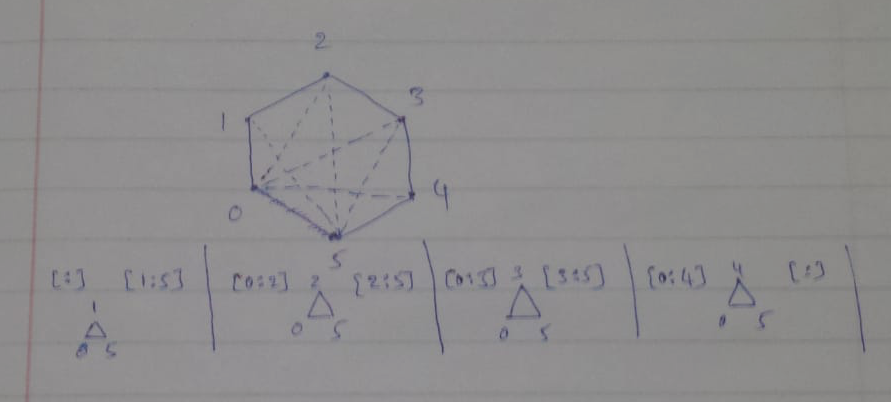 2
3
1
4
0
5
[:] [1:5] [0:2] 2 [2:5] [0:3] 3 [3:5] [0:4] 4 [:]
1
0 5 0 5 0 5 0 5